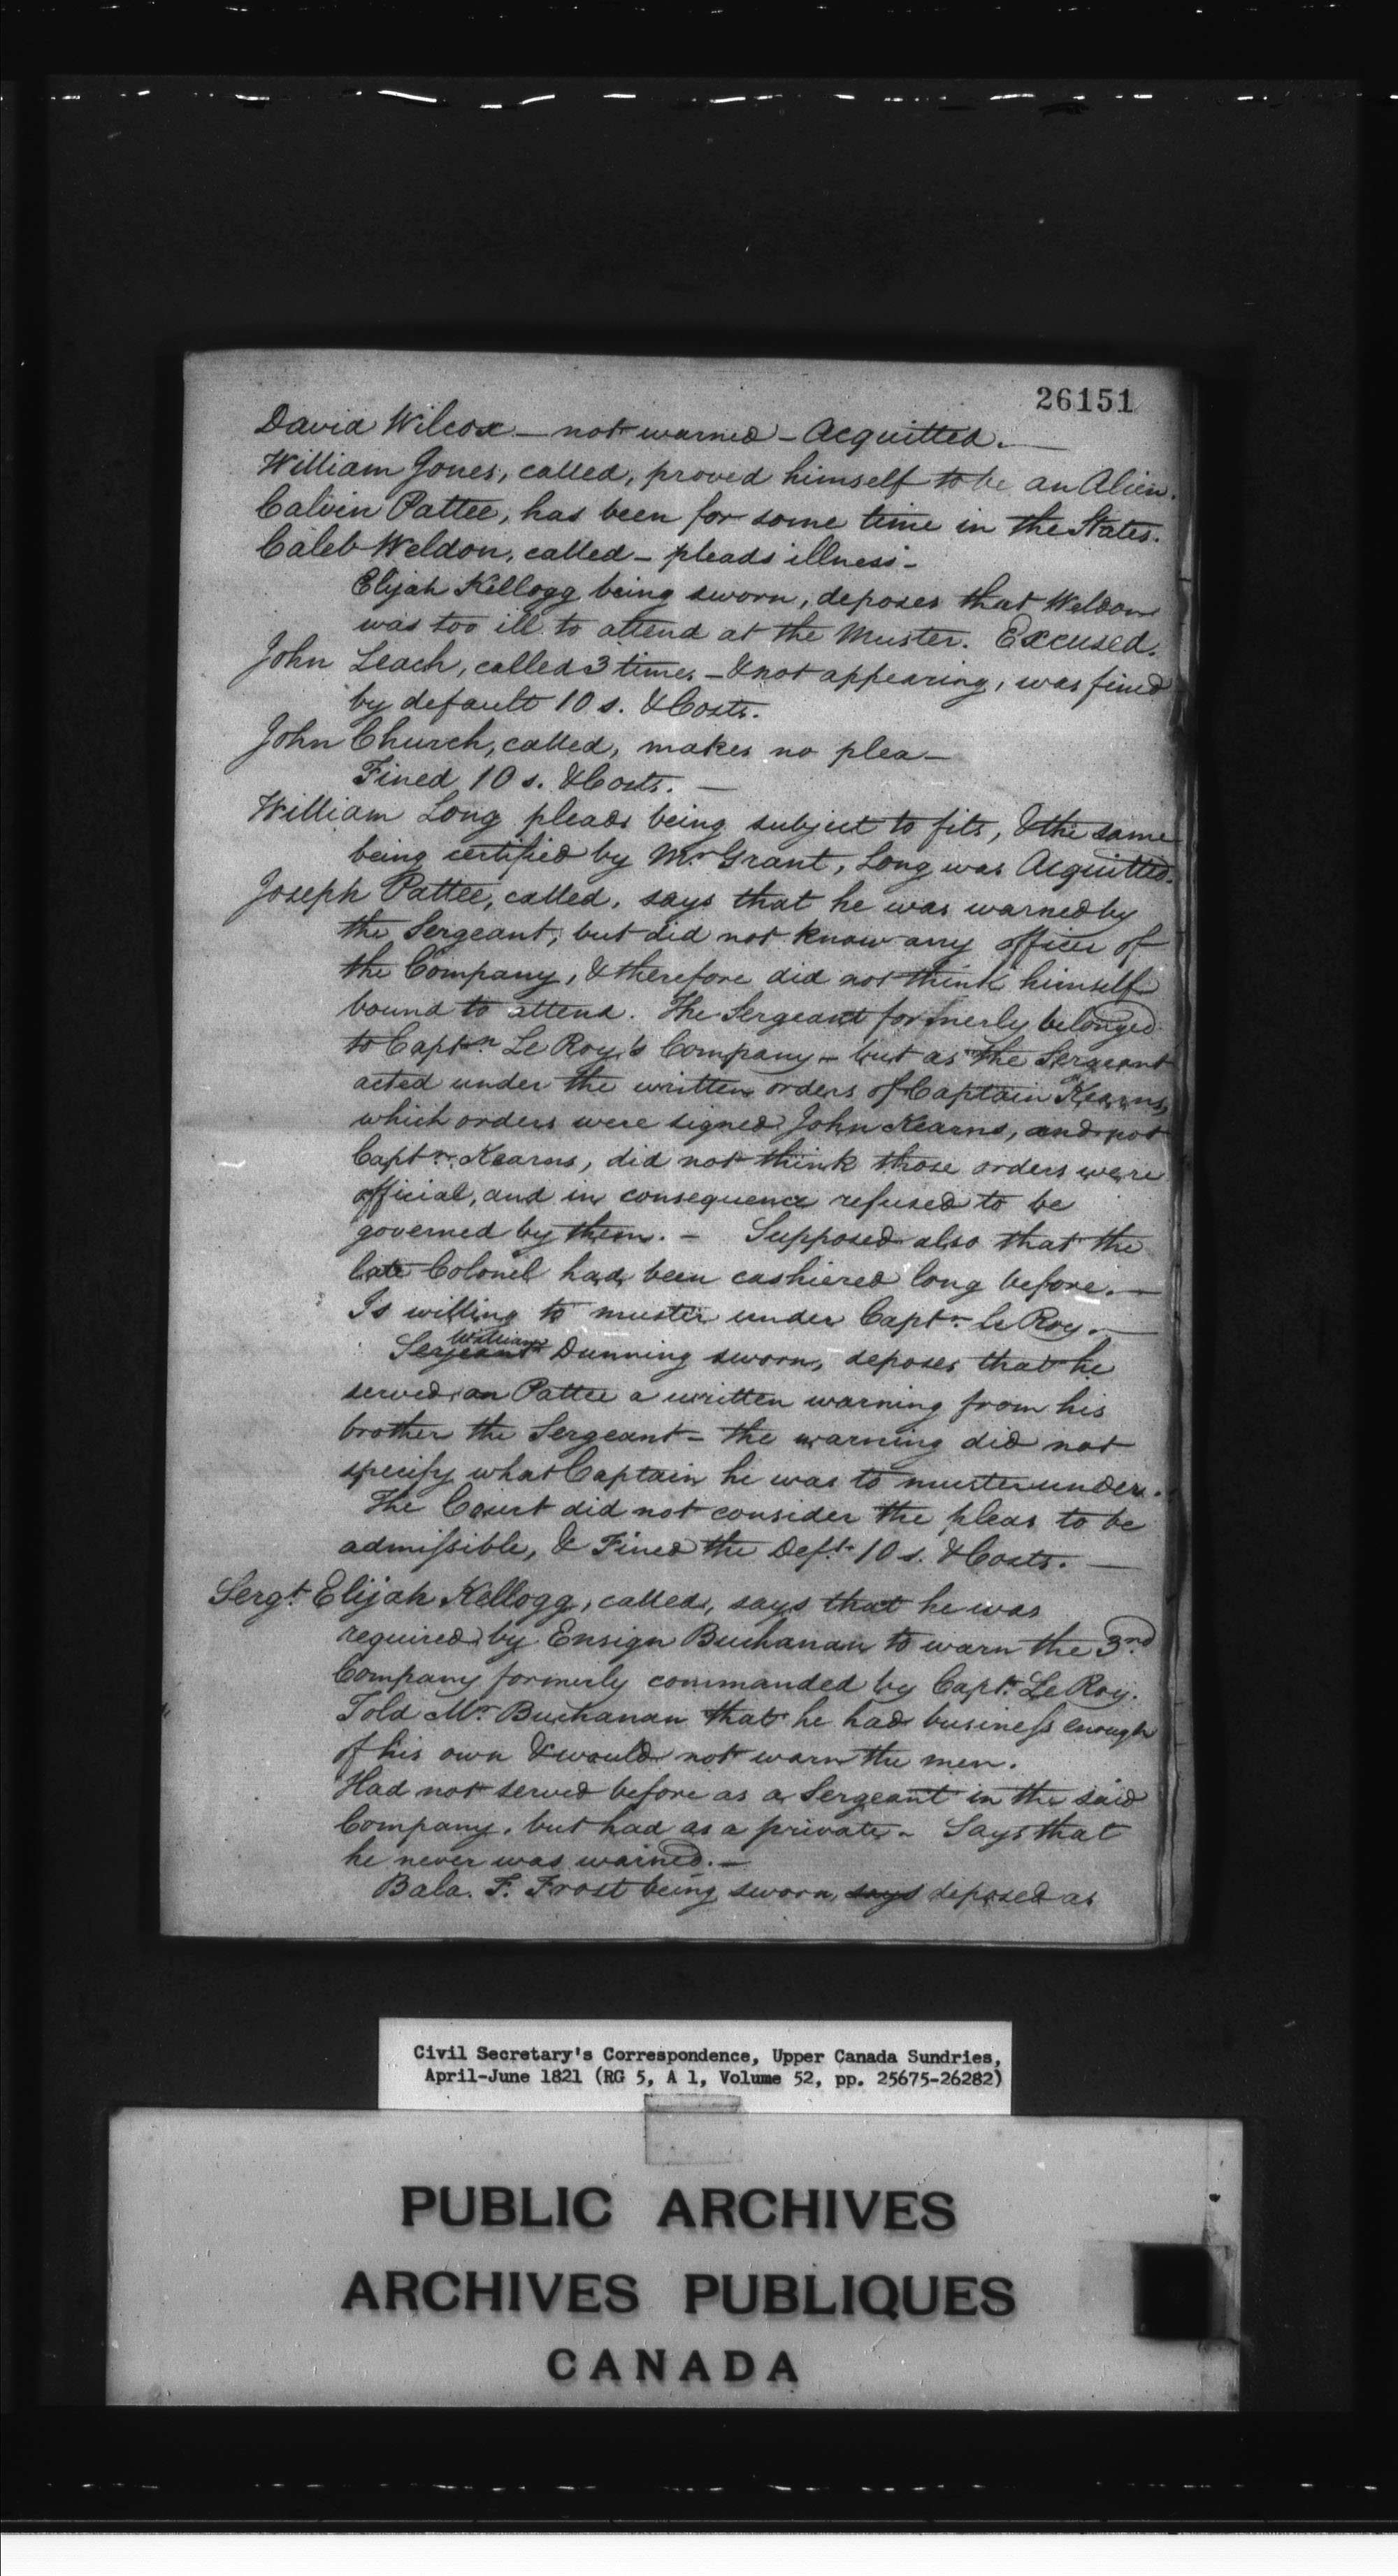 26151
David Wilcox – not warned – Acquitted. —
William Jones, called, proved himself to be an Alien.
Calvin Pattee, has been for some time in the States.
Caleb Weldon, called – pleads illness –
Elijah Kellogg being sworn, deposes that Weldon
was too ill to attend at the Muster. Excused.
John Leach, called 3 times – & not appearing, was fined
by default 10 s. & Costs.
John Church, called, makes no plea –
Fined 10 s. & Costs. —
William Long pleads being subject to fits, & the same
being certified by Mr Grant, Long was Acquitted.
Joseph Pattee, called, says that he was warned by
the Sergeant, but did not know any officer of
the Company, & therefore did not think himself
bound to attend. The Sergeant formerly belonged
to Captn Le Roy's Company – but as the Sergeant
acted under the written orders of Captain Kearns,
which orders were signed John Kearns, and not
Captn. Kearns, did not think those orders were
official, and in consequence refused to be
governed by them. – Supposed also that the
late Colonel had been cashiered long before. —
Is willing to muster under Captn. Le Roy. —
William
Serjeant Dunning sworn, deposes that he
served on Pattee a written warning from his
brother the Sergeant – the warning did not
specify what Captain he was to muster under.
The Court did not consider the pleas to be
admissible, & Fined the Deft. 10 s. & Costs. —
Sergt. Elijah Kellogg, called, says that he was
required by Ensign Buchanan to warn the 3rd
Company formerly commanded by Capt. Le Roy.
Told Mr. Buchanan that he had business enough
of his own & would not warn the men.
Had not served before as a Sergeant in the said
Company, but had as a private. – Says that
he never was warned. —
Bala. F. Frost being sworn, says deposed as
Civil Secretary's Correspondence, Upper Canada Sundries,
April-June 1821 (RG 5, A 1, Volume 52, pp. 25675-26282)
PUBLIC ARCHIVES
ARCHIVES PUBLIQUES
CANADA